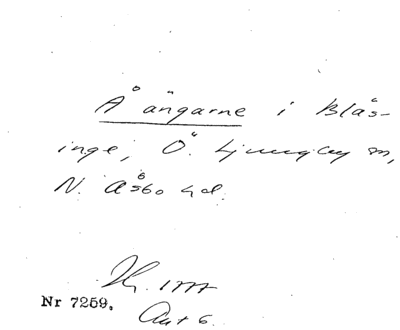 Å ängarne i Blås-
inge, Ö. Ljungby sn,
N. Åsbo hd.
Nr 7259.